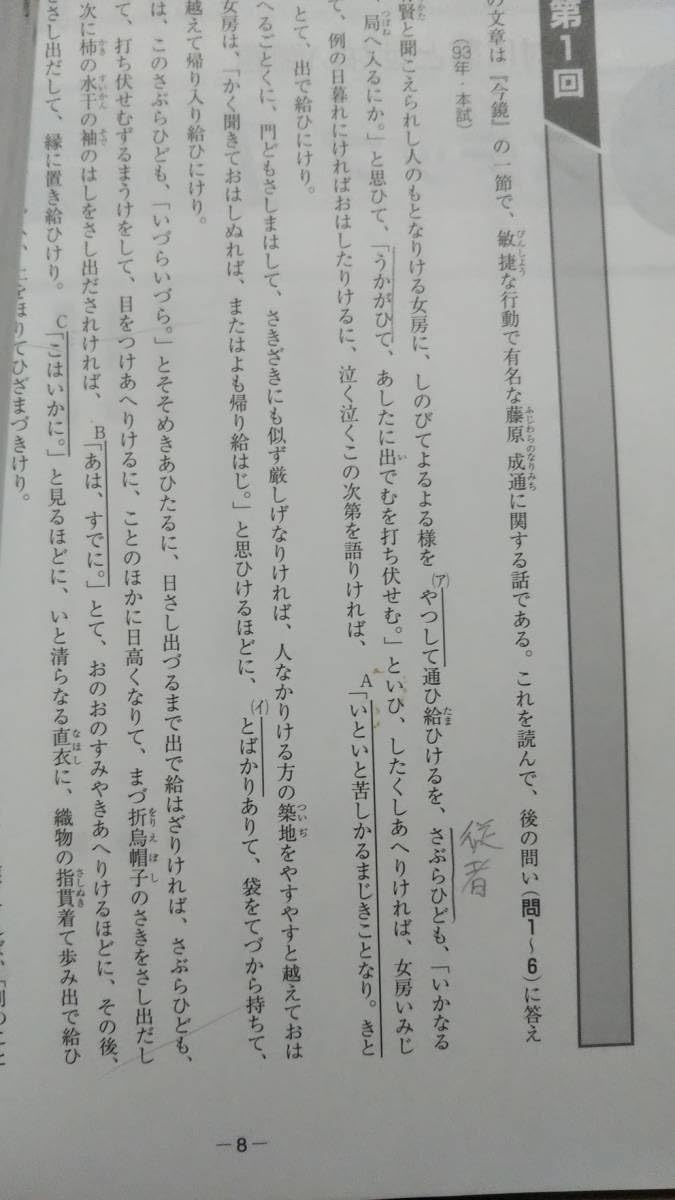 第1回
の文章は『今鏡』の一節で、敏捷な行動で有名な藤原成通に関する話である。これを読んで、後の問い(問1〜6)に答え
(93年・本試)
賢と聞こえられし人のもとなりける女房に、しのびてよるよる様を(ア)やつして通ひ給ひけるを、さぶらひども、「いかなる
従者
、局へ入るにか。」と思ひて、「うかがひて、あしたに出でむを打ち伏せむ。」といひ、したくしあへりければ、女房いみじ
て、例の日暮れにければおはしたりけるに、泣く泣くこの次第を語りければ、A「いといと苦しかるまじきことなり。きと
とて、出で給ひにけり。
へるごとくに、門どもさしまはして、さきざきにも似ず厳しげなりければ、人なかりける方の築地をやすやすと越えておは
女房は、「かく聞きておはしぬれば、またはよも帰り給はじ。」と思ひけるほどに、(イ)とばかりありて、袋をてづから持ちて、
越えて帰り入り給ひにけり。
は、このさぶらひども、「いづらいづら。」とそそめきあひたるに、日さし出づるまで出で給はざりければ、さぶらひども、
て、打ち伏せむずるまうけをして、目をつけあへりけるに、ことのほかに日高くなりて、まづ折烏帽子のさきをさし出だし
次に柿の水干の袖のはしをさし出だされければ、B「あは、すでに。」とて、おのおのすみやきあへりけるほどに、その後、
さし出だして、縁に置き給ひけり。C「こはいかに。」と見るほどに、いと清らなる直衣に、織物の指貫着て歩み出で給ひ
をほりてひざまづきけり。
—8—